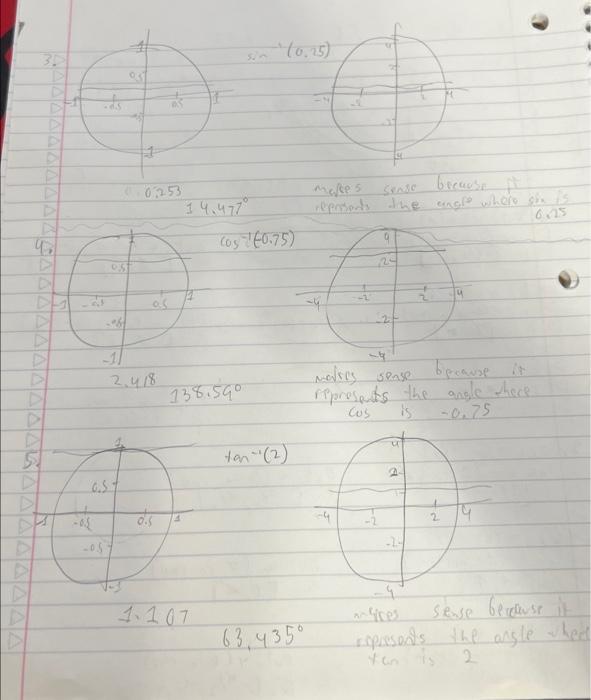 3.
sin⁻¹(0.25)
1
0.5
-1
-0.5
0.5
1
-0.5
-1
4
2
-4
-2
2
4
-2
-4
0.253
14.477°
makes sense because it
represents the angle where sin is
0.25
4.
cos⁻¹(-0.75)
1
0.5
-1
-0.5
0.5
1
-0.5
-1
4
2
-4
-2
2
4
-2
-4
2.418
138.59°
makes sense because it
represents the angle where
cos is -0.75
5.
tan⁻¹(2)
1
0.5
-1
-0.5
0.5
1
-0.5
-1
4
2
-4
-2
2
4
-2
-4
1.107
63.435°
makes sense because it
represents the angle where
tan is 2